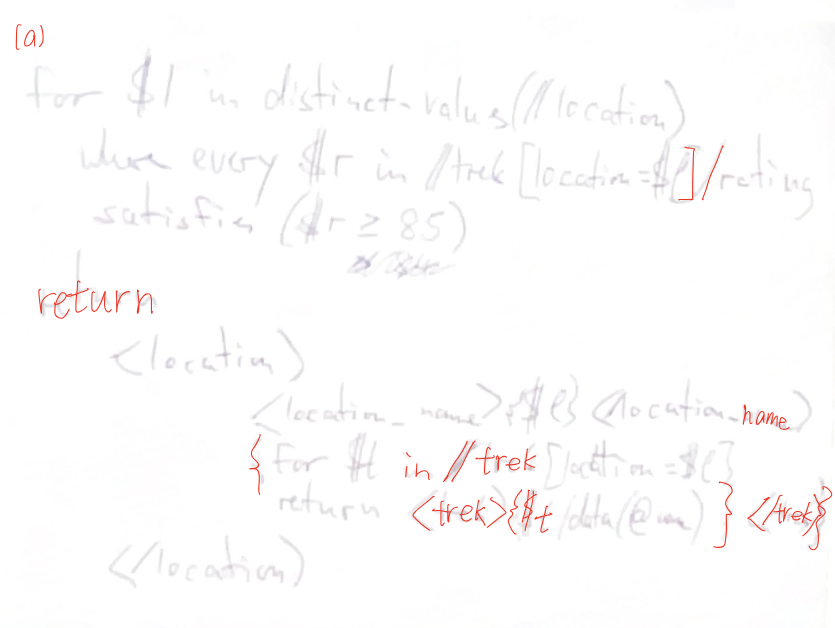 (a)
for $l in distinct-values(//location)
where every $r in //trek[location=$l]/rating
satisfies ($r ≥ 85)
return
<location>
<location_name>{$l}</location_name>
{for $t in //trek[location=$l]
return <trek>{$t/data(@ )}</trek>}
</location>